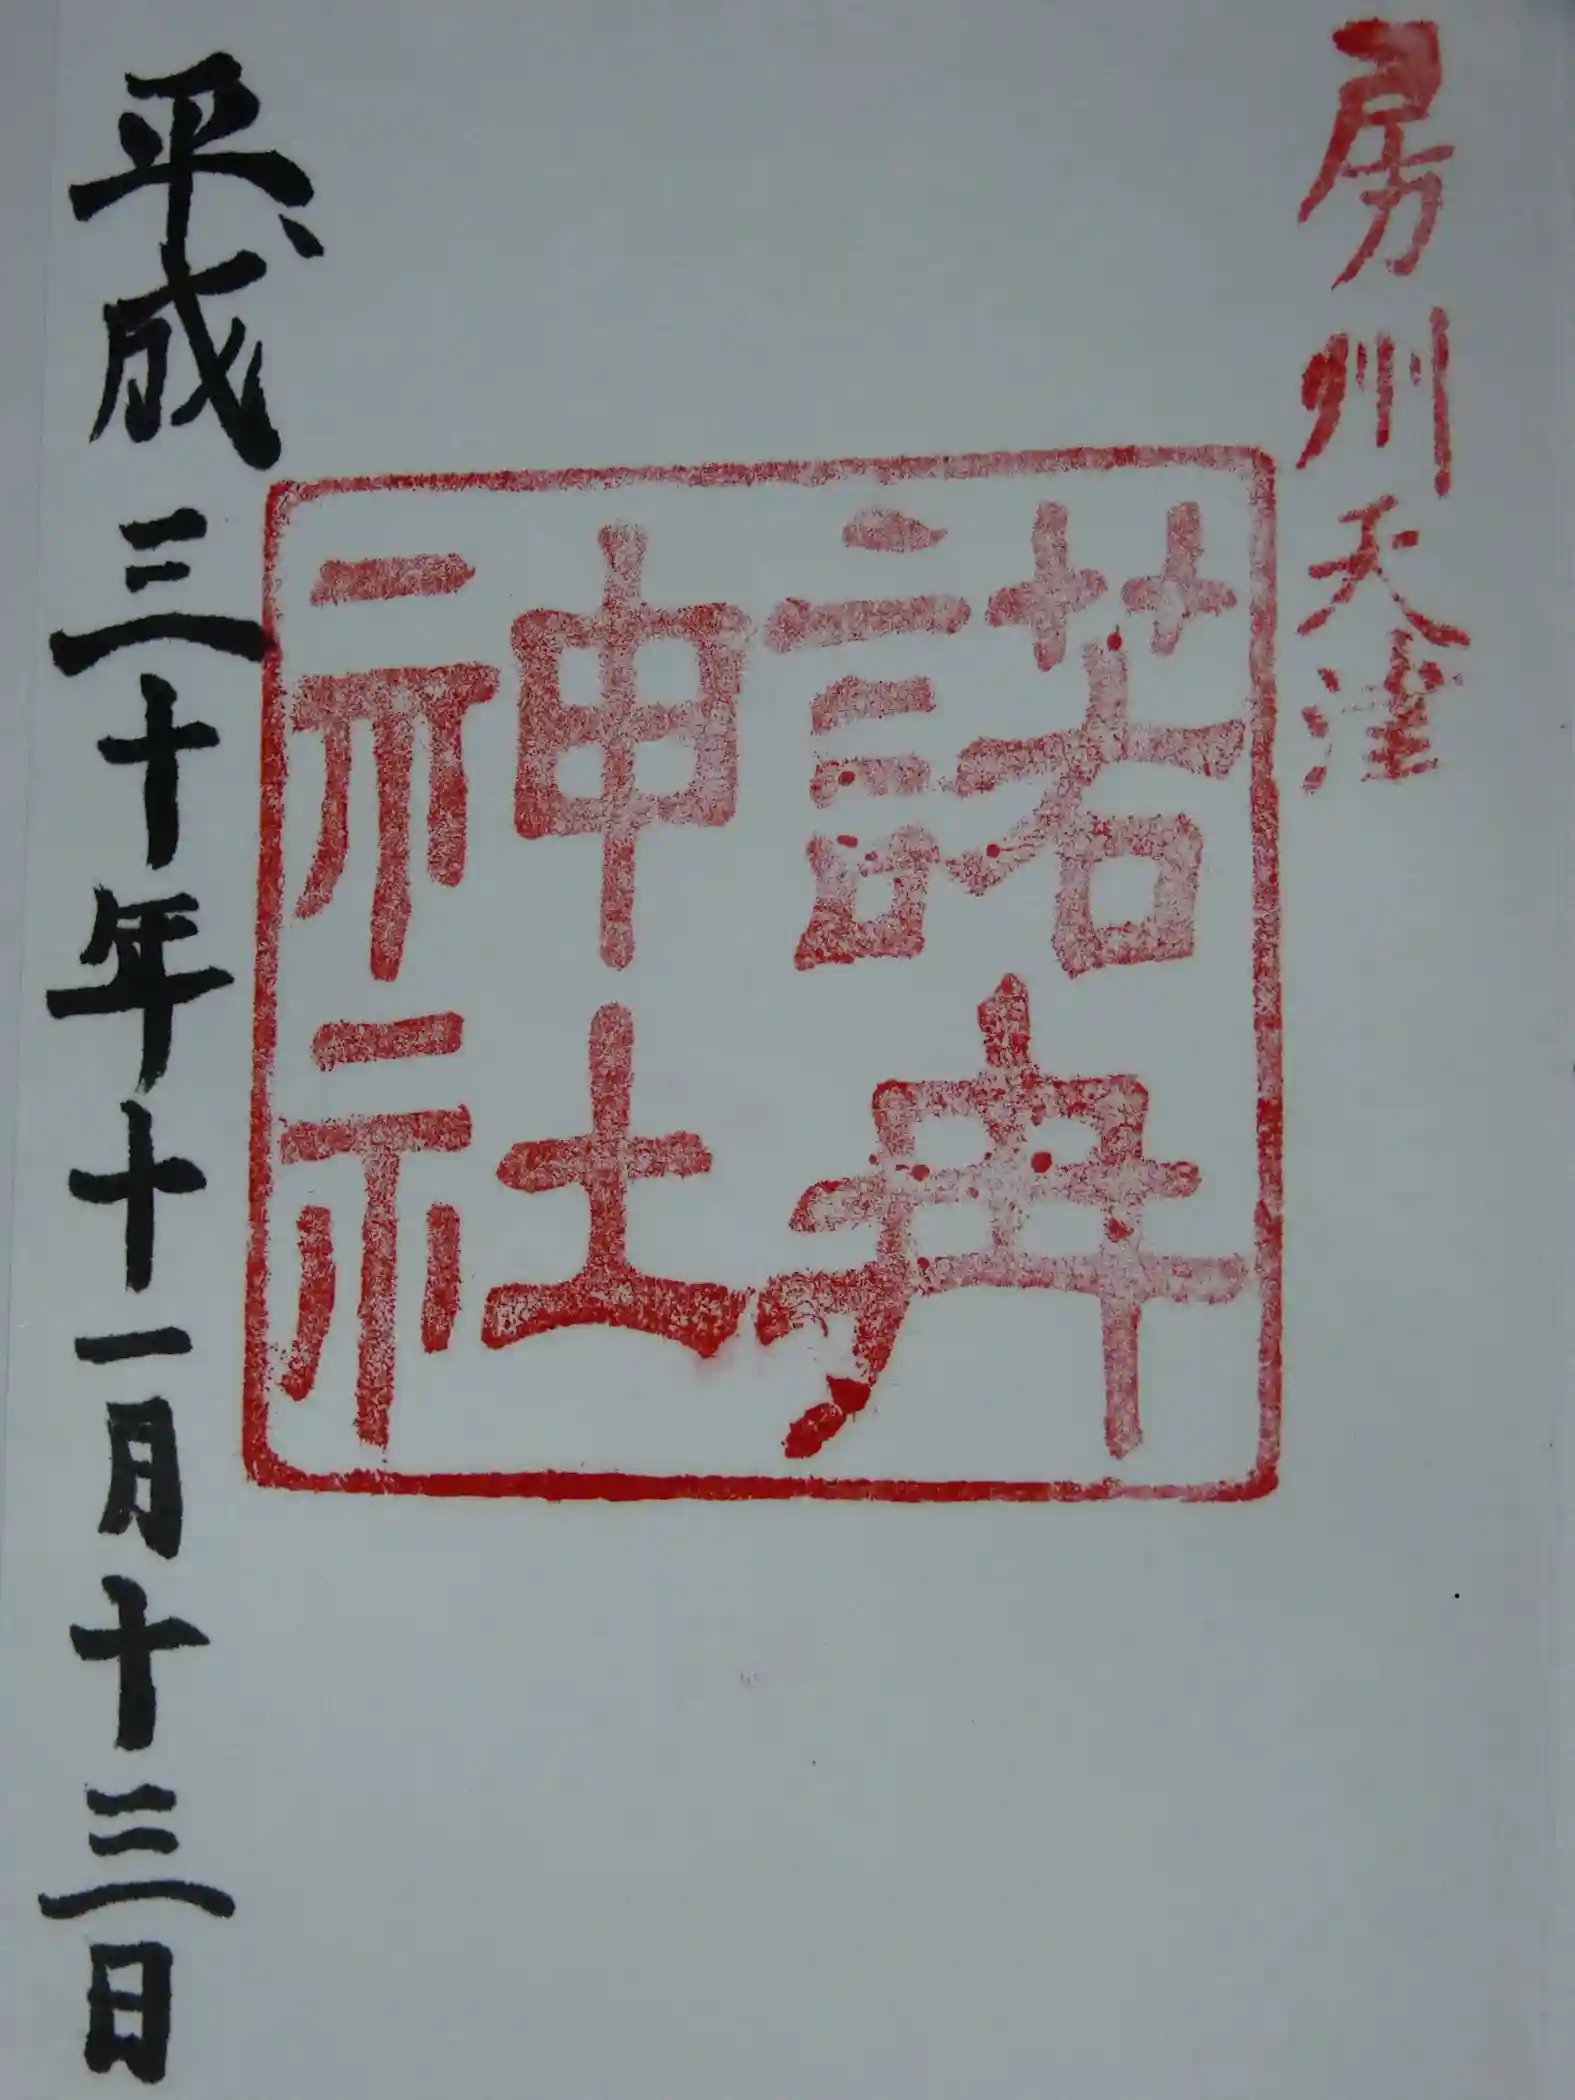 房州天津
諾冉
神社
平成三十年十一月十三日